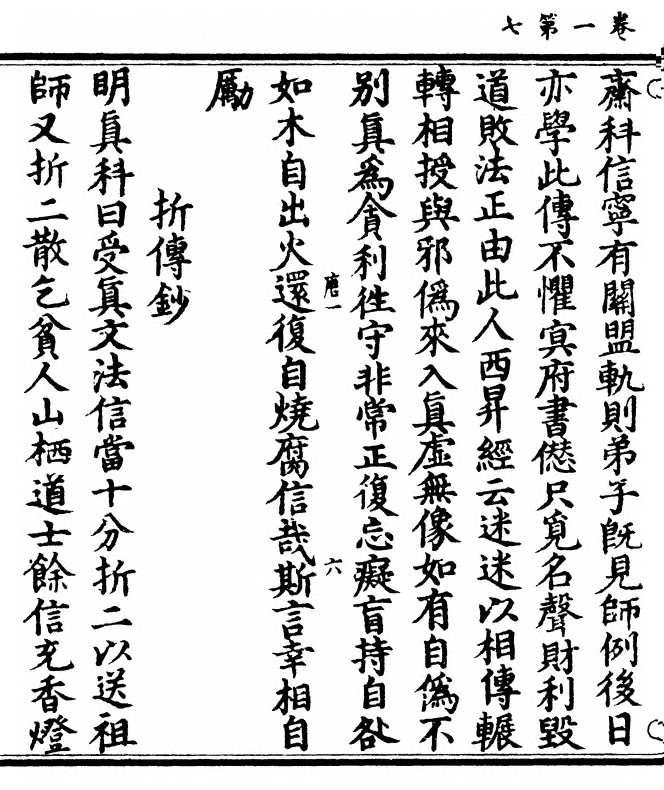 卷一第七
齋科信寧有關盟軌則弟子旣見師例後日
亦學此傳不懼冥府書𠎝只覓名聲財利毀
道敗法正由此人西昇經云迷迷以相傳輾
轉相授與邪僞來入眞虛無像如有自僞不
别眞爲貪利徃守非常正復忘癡盲持自咎
唐一
六
如木自出火還復自燒腐信哉斯言幸相自
勵
折傳鈔
明眞科曰受眞文法信當十分折二以送祖
師又折二散乞貧人山栖道士餘信充香燈